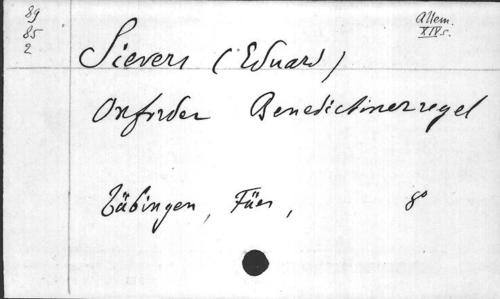 89
85
2
Allem.
XIVs.
Sievers (Eduard)
Oxforder Benedictinerregel
Tübingen, Fues, 8°